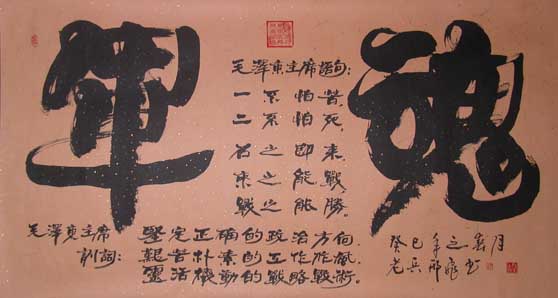 軍魂
毛澤東主席語句：
一不怕苦，
二不怕死，
召之即来，
来之能戰，
戰之能勝。
毛澤東主席
訓詞：
堅定正确的政治方向，
艱苦朴素的工作作風，
靈活機動的戰略戰術。
癸巳年之春月
老兵